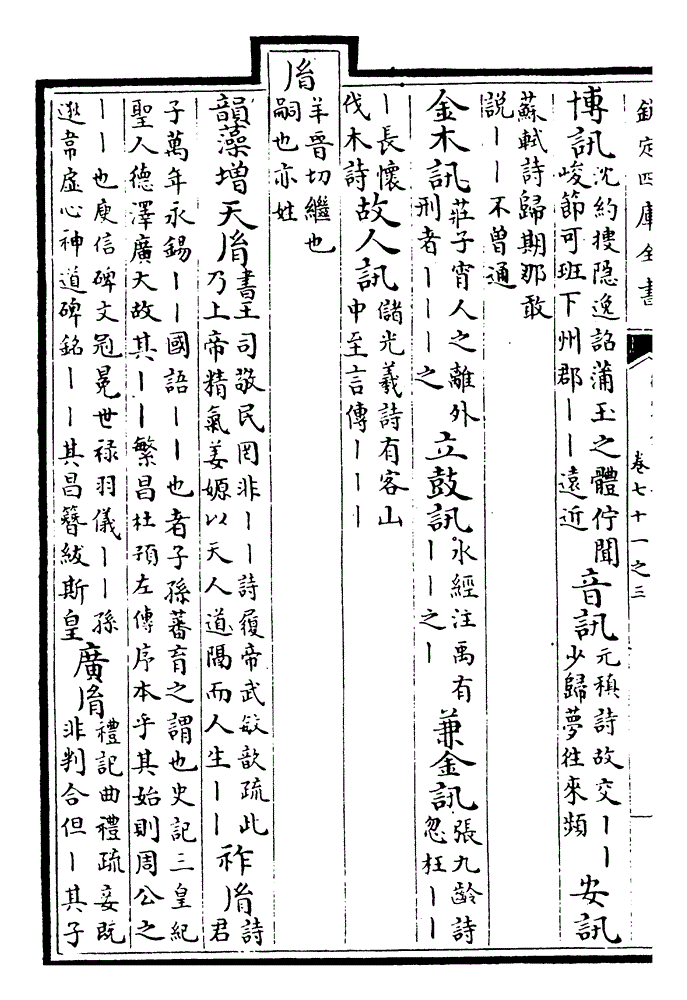 欽定四庫全書
卷七十一之三
博訊沈約摟隐逸詔蒲玉之體佇聞峻節可班下州郡丨丨遠近音訊元稹詩故交丨丨少歸夢往來頻安訊
蘇軾詩歸期那敢説丨丨不曾通
金木訊莊子宵人之離外刑者丨丨丨之立鼓訊水經注禹有丨丨之丨兼金訊張九齡詩忽枉丨丨
丨長懷伐木詩故人訊儲光羲詩有客山中至言傳丨丨丨
𦙍羊晉切繼也嗣也亦姓
韻藻增天𦙍書王司敬民罔非丨丨詩履帝武敏歆疏此乃上帝精氣姜嫄以天人道隔而人生丨丨祚𦙍詩君
子萬年永錫丨丨國語丨丨也者子孫蕃育之謂也史記三皇紀聖人德澤廣大故其丨丨繁昌杜預左傳序本乎其始則周公之
丨丨也庾信碑文冠冕世禄羽儀丨丨孫逖韋虛心神道碑銘丨丨其昌簪紱斯皇廣𦙍禮記曲禮疏妾既非判合但丨其子